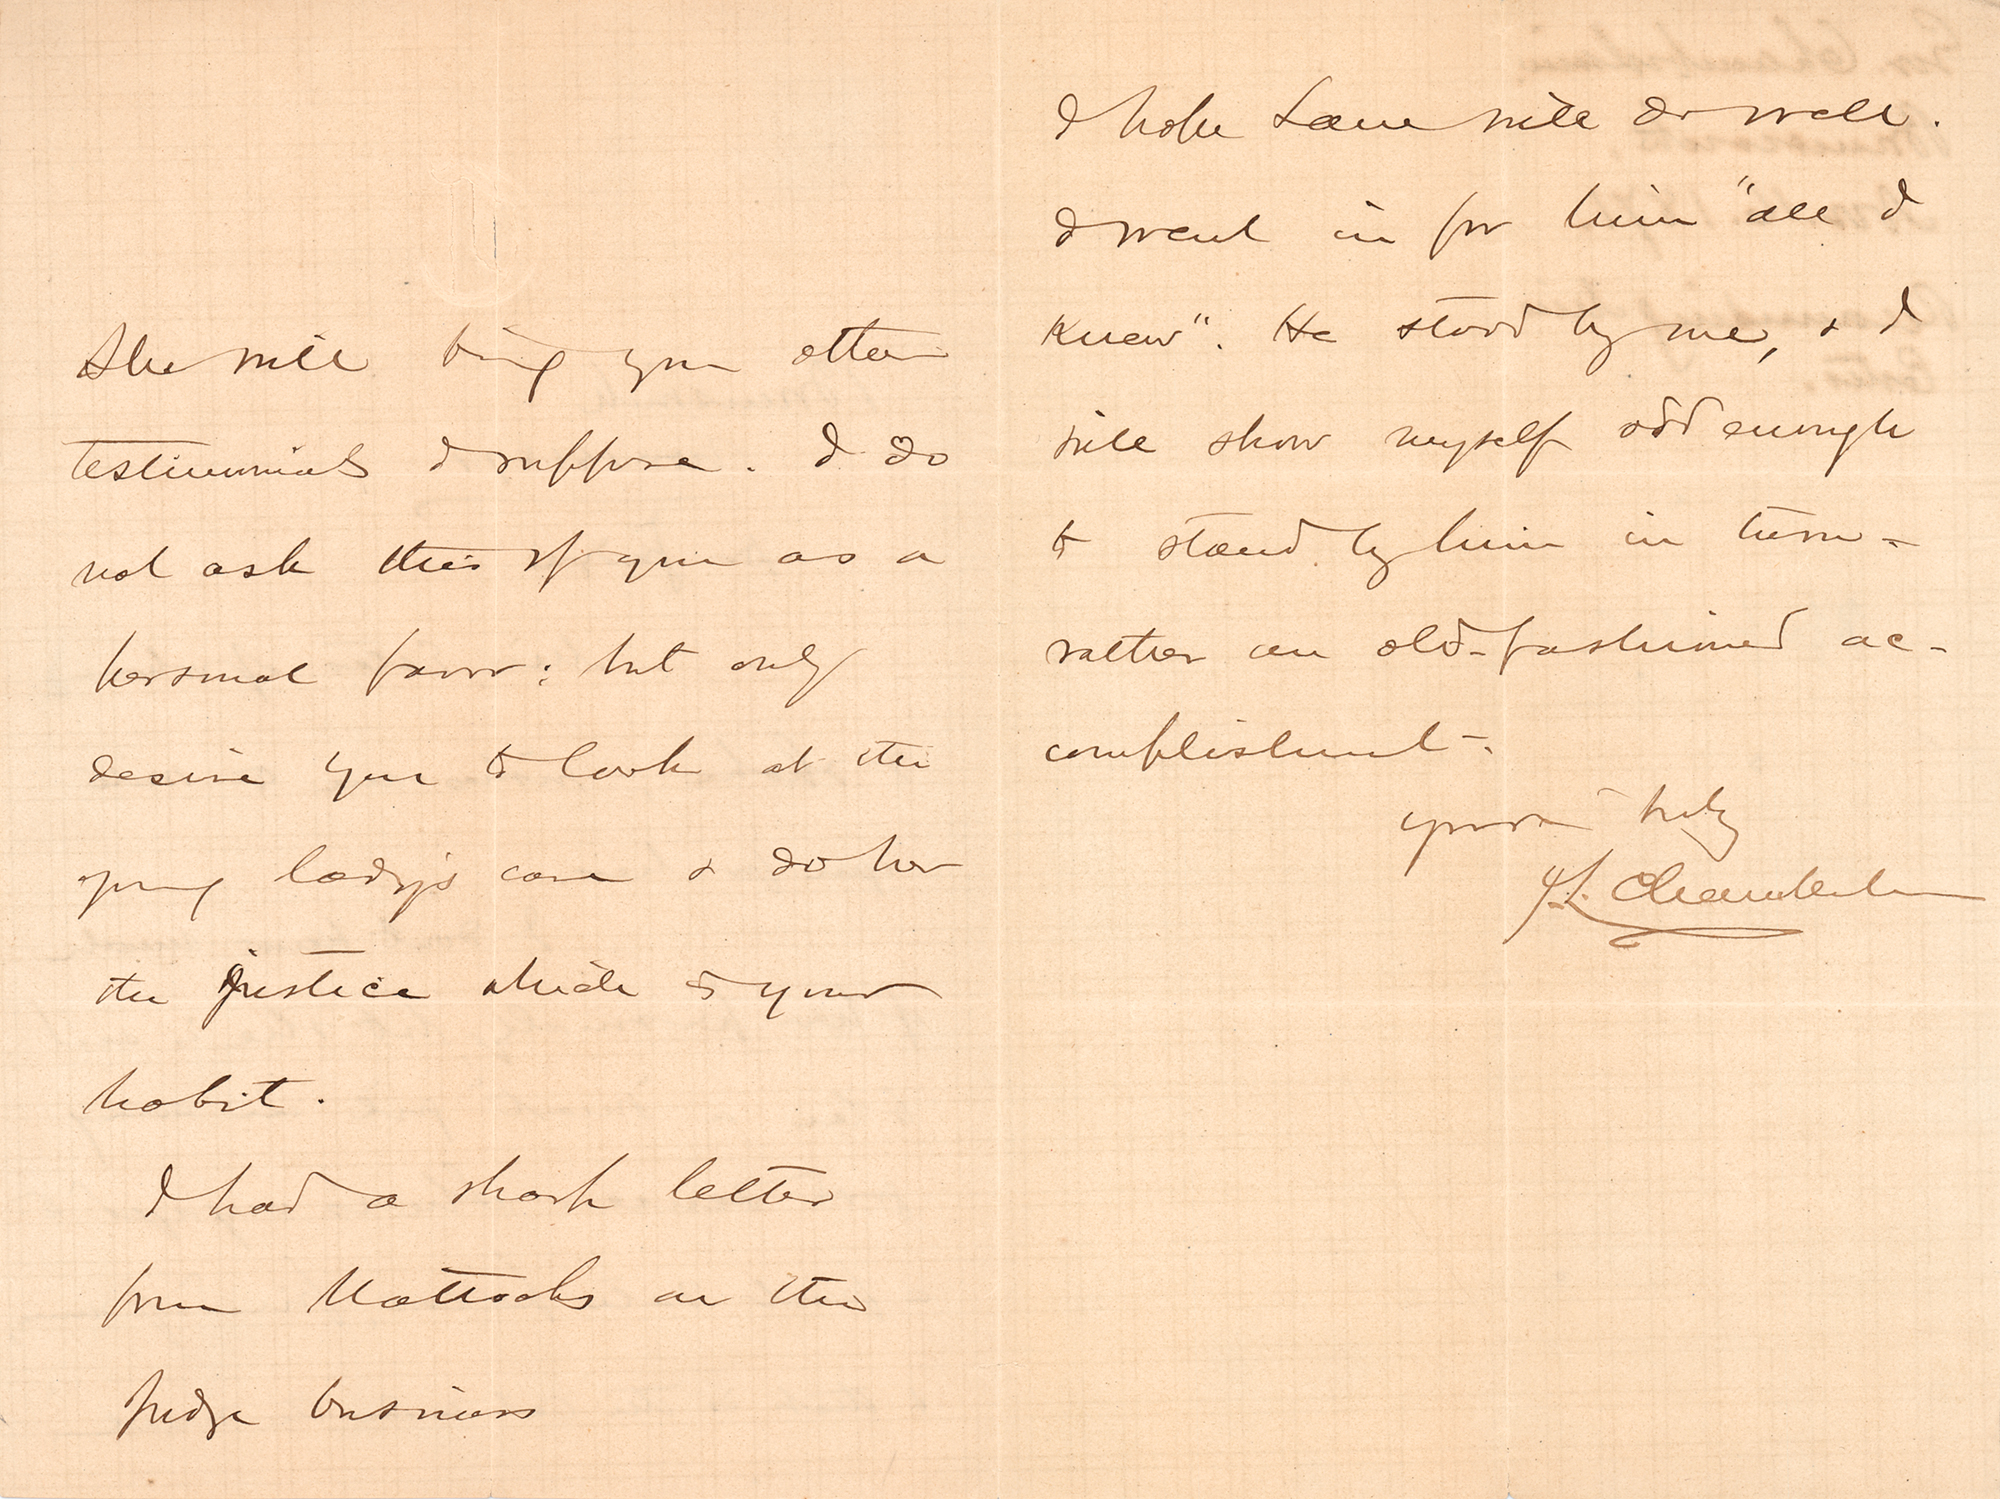 She will bring you other
testimonials I suppose. I do
not ask this of you as a
personal favor; but only
desire you to look at the
young lady's case & do her
the justice which is your
habit.
I had a sharp letter
from Mattocks on the
judge business
I hope Lane will do well.
I went in for him "all I
knew". He stood by me, & I
will show myself odd enough
to stand by him in turn -
rather an old-fashioned ac-
complishment -.
yours truly
J. L. Chamberlain